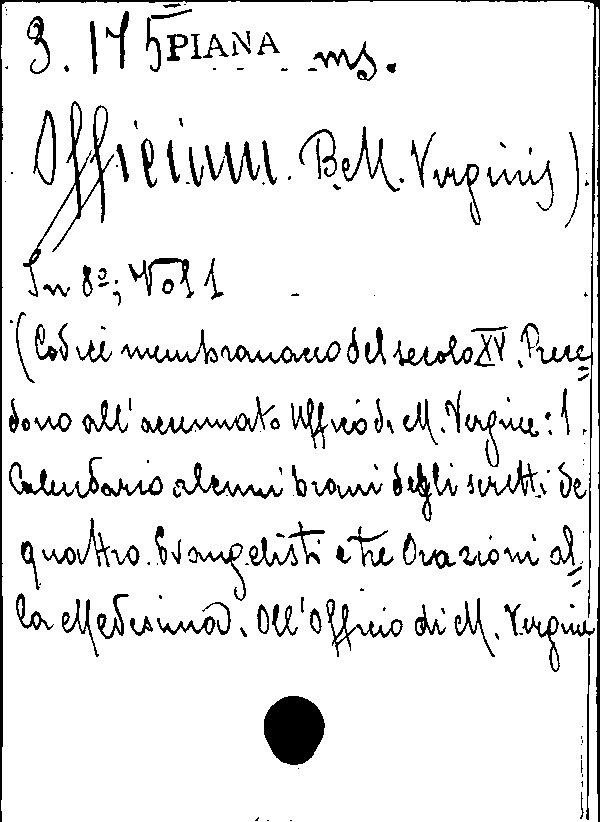 3. 175 PIANA ms.
Officium. B. M. Virginis)
In 8º; Vol 1
(Codici membranaceo del secolo XV. Prece=
dono all'accennato Ufficio di M. Vergine: 1.
Calendario alcuni brani degli scritti de
quattro Evangelisti e tre Orazioni al=
la Medesima. All'Officio di M. Vergine